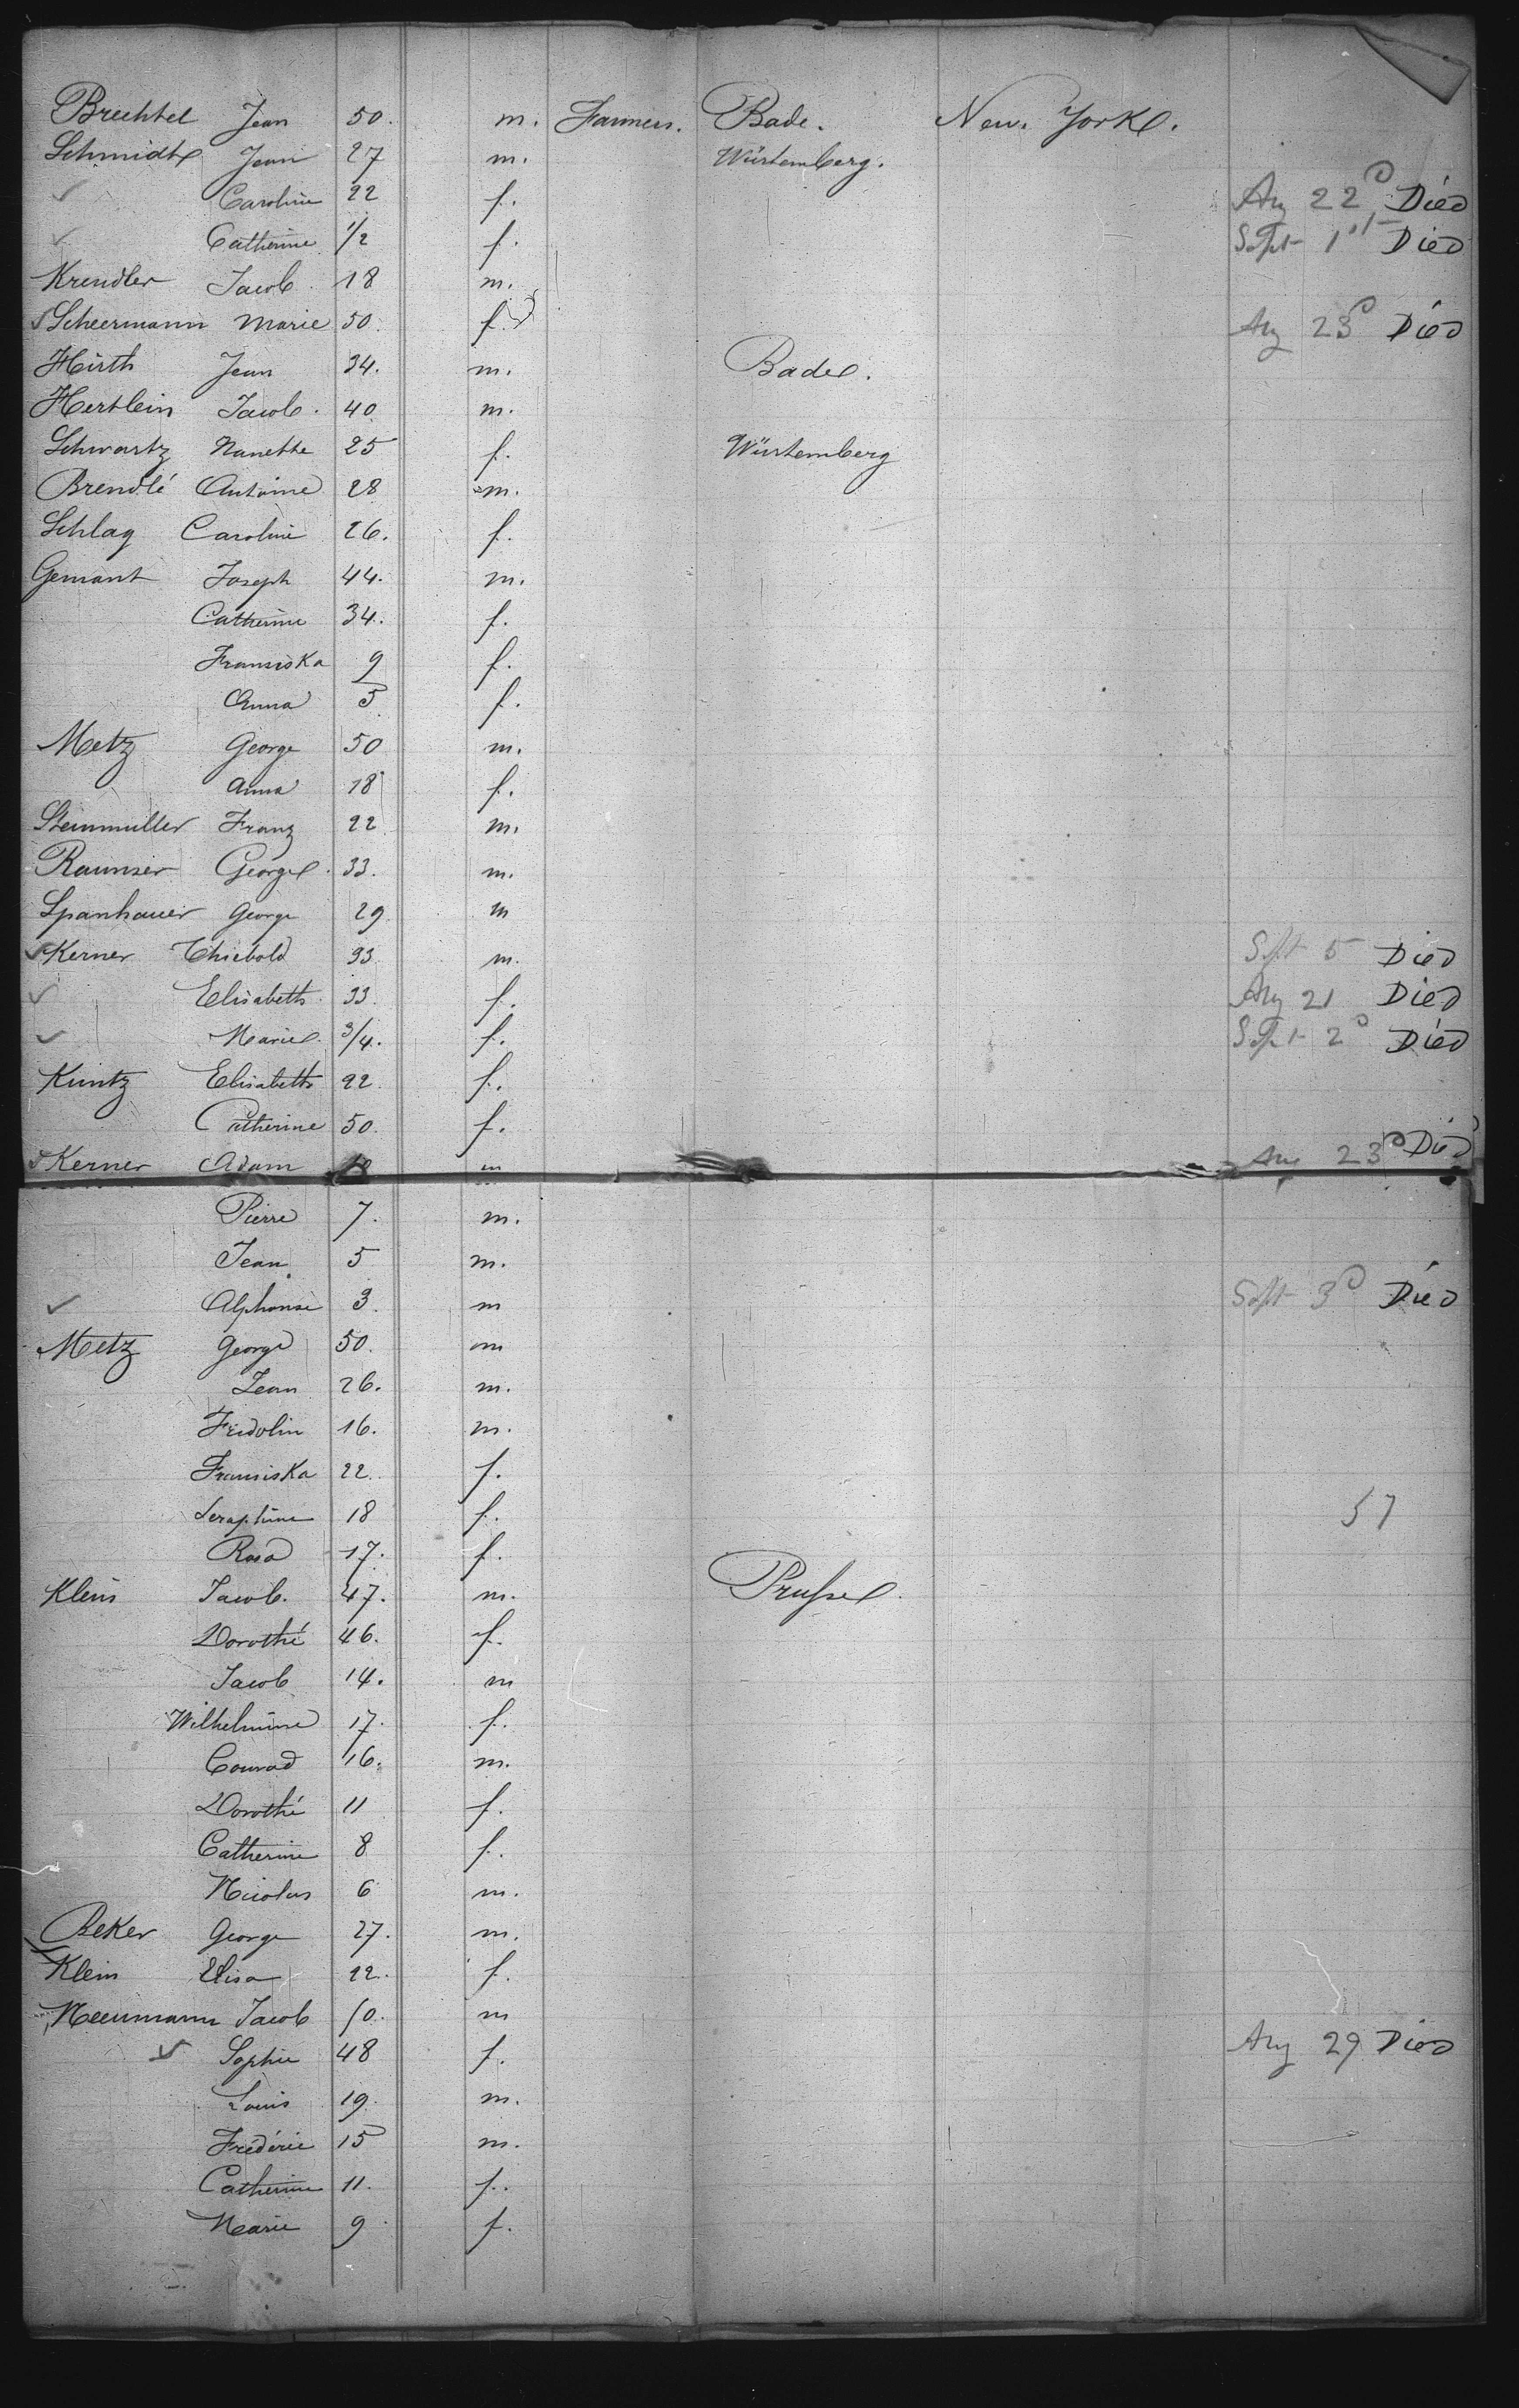 Brechtel Jean 50. m. Farmers. Bade. New. York.
Schmidt Jean 27 m. Würtemberg.
✓ Caroline 22 f. Aug 22d Died
✓ Catherine 1/2 f. Sept 1st Died
Krendler Jacob. 18 m.
Scheermann Marie 50. f. Aug 23d Died
Hirth Jean 34. m. Bade.
Hertlein Jacob. 40 m.
Schwartz Nanette 25 f. Würtemberg
Brendlé Antoine 28 m.
Schlag Caroline 26. f.
Gemant Joseph 44. m.
Catherine 34. f.
Fransiska 9 f.
Anna 5 f.
Metz George 50 m.
Anna 18 f.
Steinmuller Franz 22 m.
Raunser George. 33. m.
Spanhauer George 29 m
✓ Kerner Thiebold 33 m. Sept 5 Died
✓ Elisabeth. 33. f. Aug 21 Died
✓ Marie. 3/4. f. Sept 2d Died
Kuntz Elisabeth 22. f.
Catherine 50. f.
Kerner Adam m Aug 23d Died
Pierre 7. m.
Jean 5 m.
✓ Alphonse 3. m Sept 3d Died
Metz George 50. m
Jean 26. m.
Fridolin 16. m.
Fransiska 22. f.
Seraphine 18 f. 57
Rosa 17. f.
Klein Jacob. 47. m. Prusse.
Dorothé 46. f.
Jacob 14. m
Wilhelmine 17. f.
Conrad 16. m.
Dorothé 11 f.
Catherine 8 f.
Nicolas 6 m.
Beker George 27. m.
Klein Elisa 22. f.
Neeumann Jacob 50. m
✓ Sophie 48 f. Aug 29 Died
Louis 19. m.
Frédéric 15 m.
Catherine 11. f.
Marie 9 f.